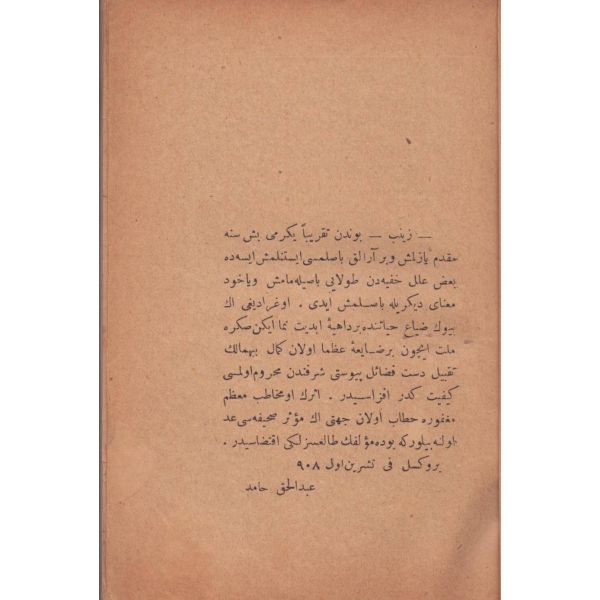 — زینب — بوندن تقریباً یکرمی بش سنه
مقدم یازلمش وبر آرالق باصلمسی ایستنلمش ایسه‌ده
بعض علل خفیه‌دن طولایی باصیله‌مامش ویاخود
معنای دیکریله باصلمش ایدی . اوغرادیغی اك
بیوك ضیاع حیاتنده برداهیهٔ ابدیت نما ایکن صکره
ملت ایچون برضایعهٔ عظما اولان کمال بیهمالك
تقبیل دست فضائل پیوستی شرفندن محروم اولمسی
کیفیت کدر افزاسیدر . اثرك اومخاطب معظم
مغفوره خطاب اولان جهتی اك مؤثر صحیفه‌سی عد
اولنه بیلورکه بوده مؤلفك طالعسزلکی اقتضاسیدر .
بروکسل فی تشرین اول ۹۰۸
عبدالحق حامد